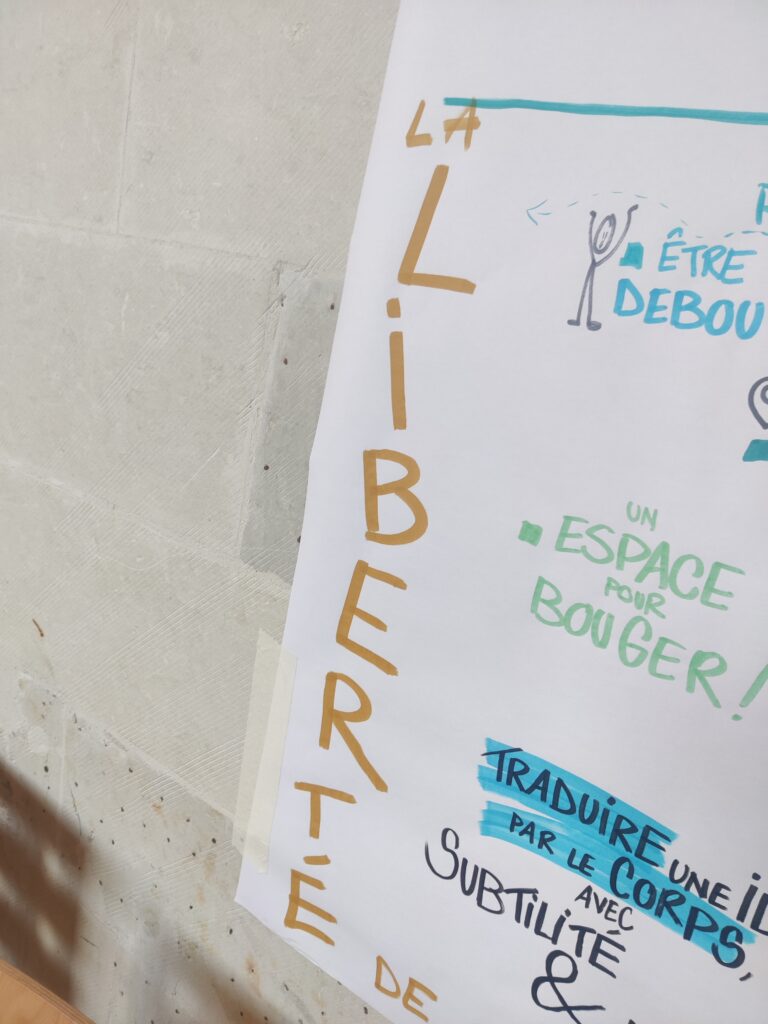 LA
LIBERTÉ
DE
ÊTRE
DEBOU
UN
ESPACE
POUR
BOUGER !
TRADUIRE UNE
PAR LE CORPS,
AVEC
SUBTILITÉ
&